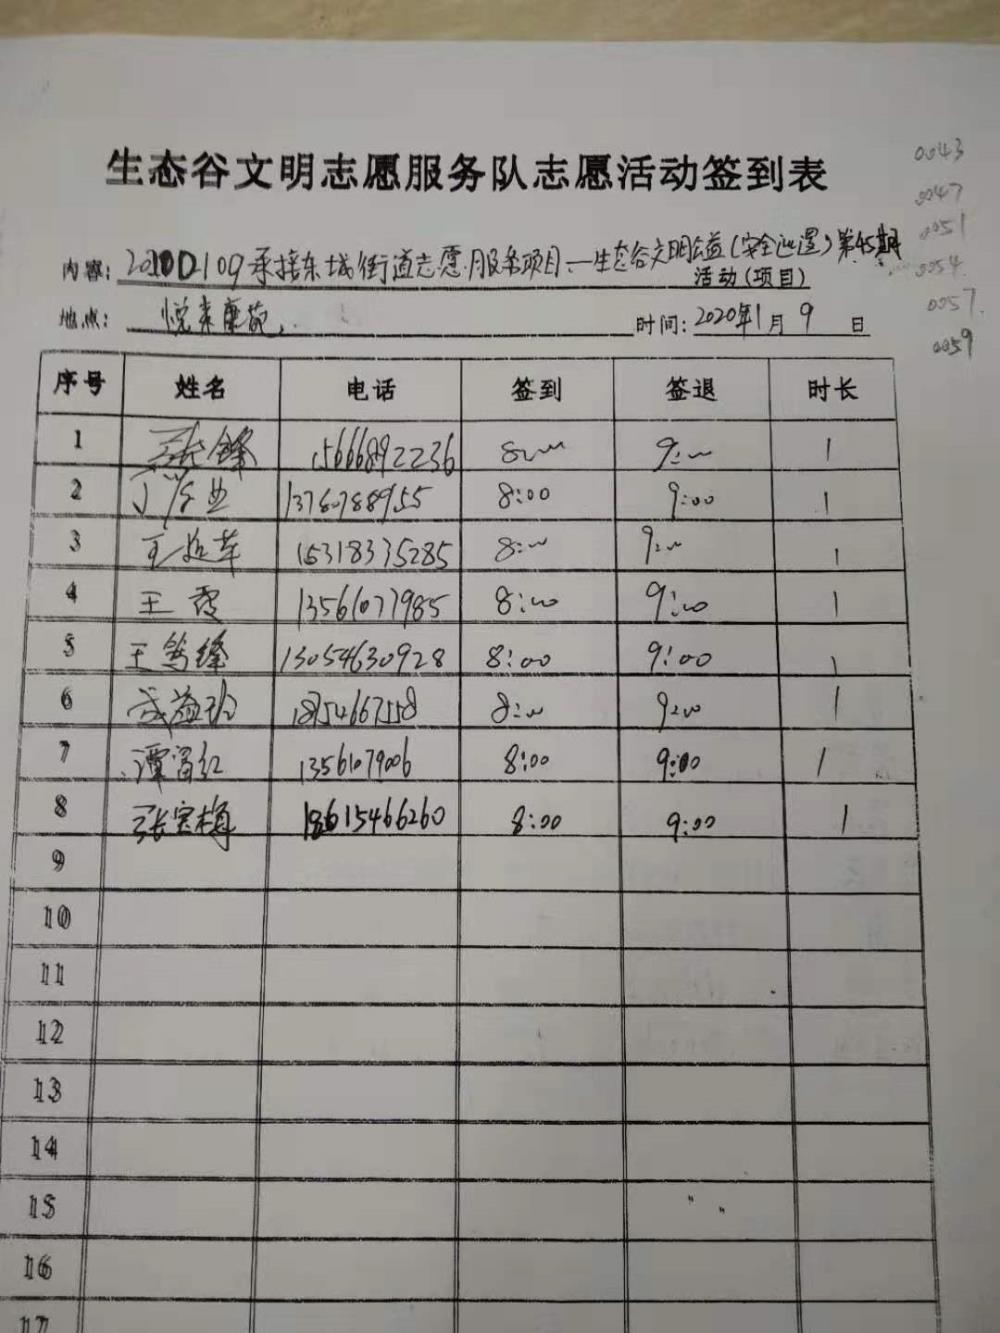 生态谷文明志愿服务队志愿活动签到表
0043
0047
0051
0054
0057
0059
内容: 20200109承接东城街道志愿服务项目——生态谷文明公益(安全巡逻)第45期
活动(项目)
地点: 悦来康苑 时间: 2020年1月9日
序号 姓名 电话 签到 签退 时长
1 张锋 15666892236 8:00 9:00 1
2 8:00 9:00 1
3 15318335285 8:00 9:00 1
4 王霞 13561077985 8:00 9:00 1
5 13054630928 8:00 9:00 1
6 18754667558 8:00 9:00 1
7 13561079006 8:00 9:00 1
8 张宝梅 18615466260 8:00 9:00 1
9
10
11
12
13
14
15
16
17